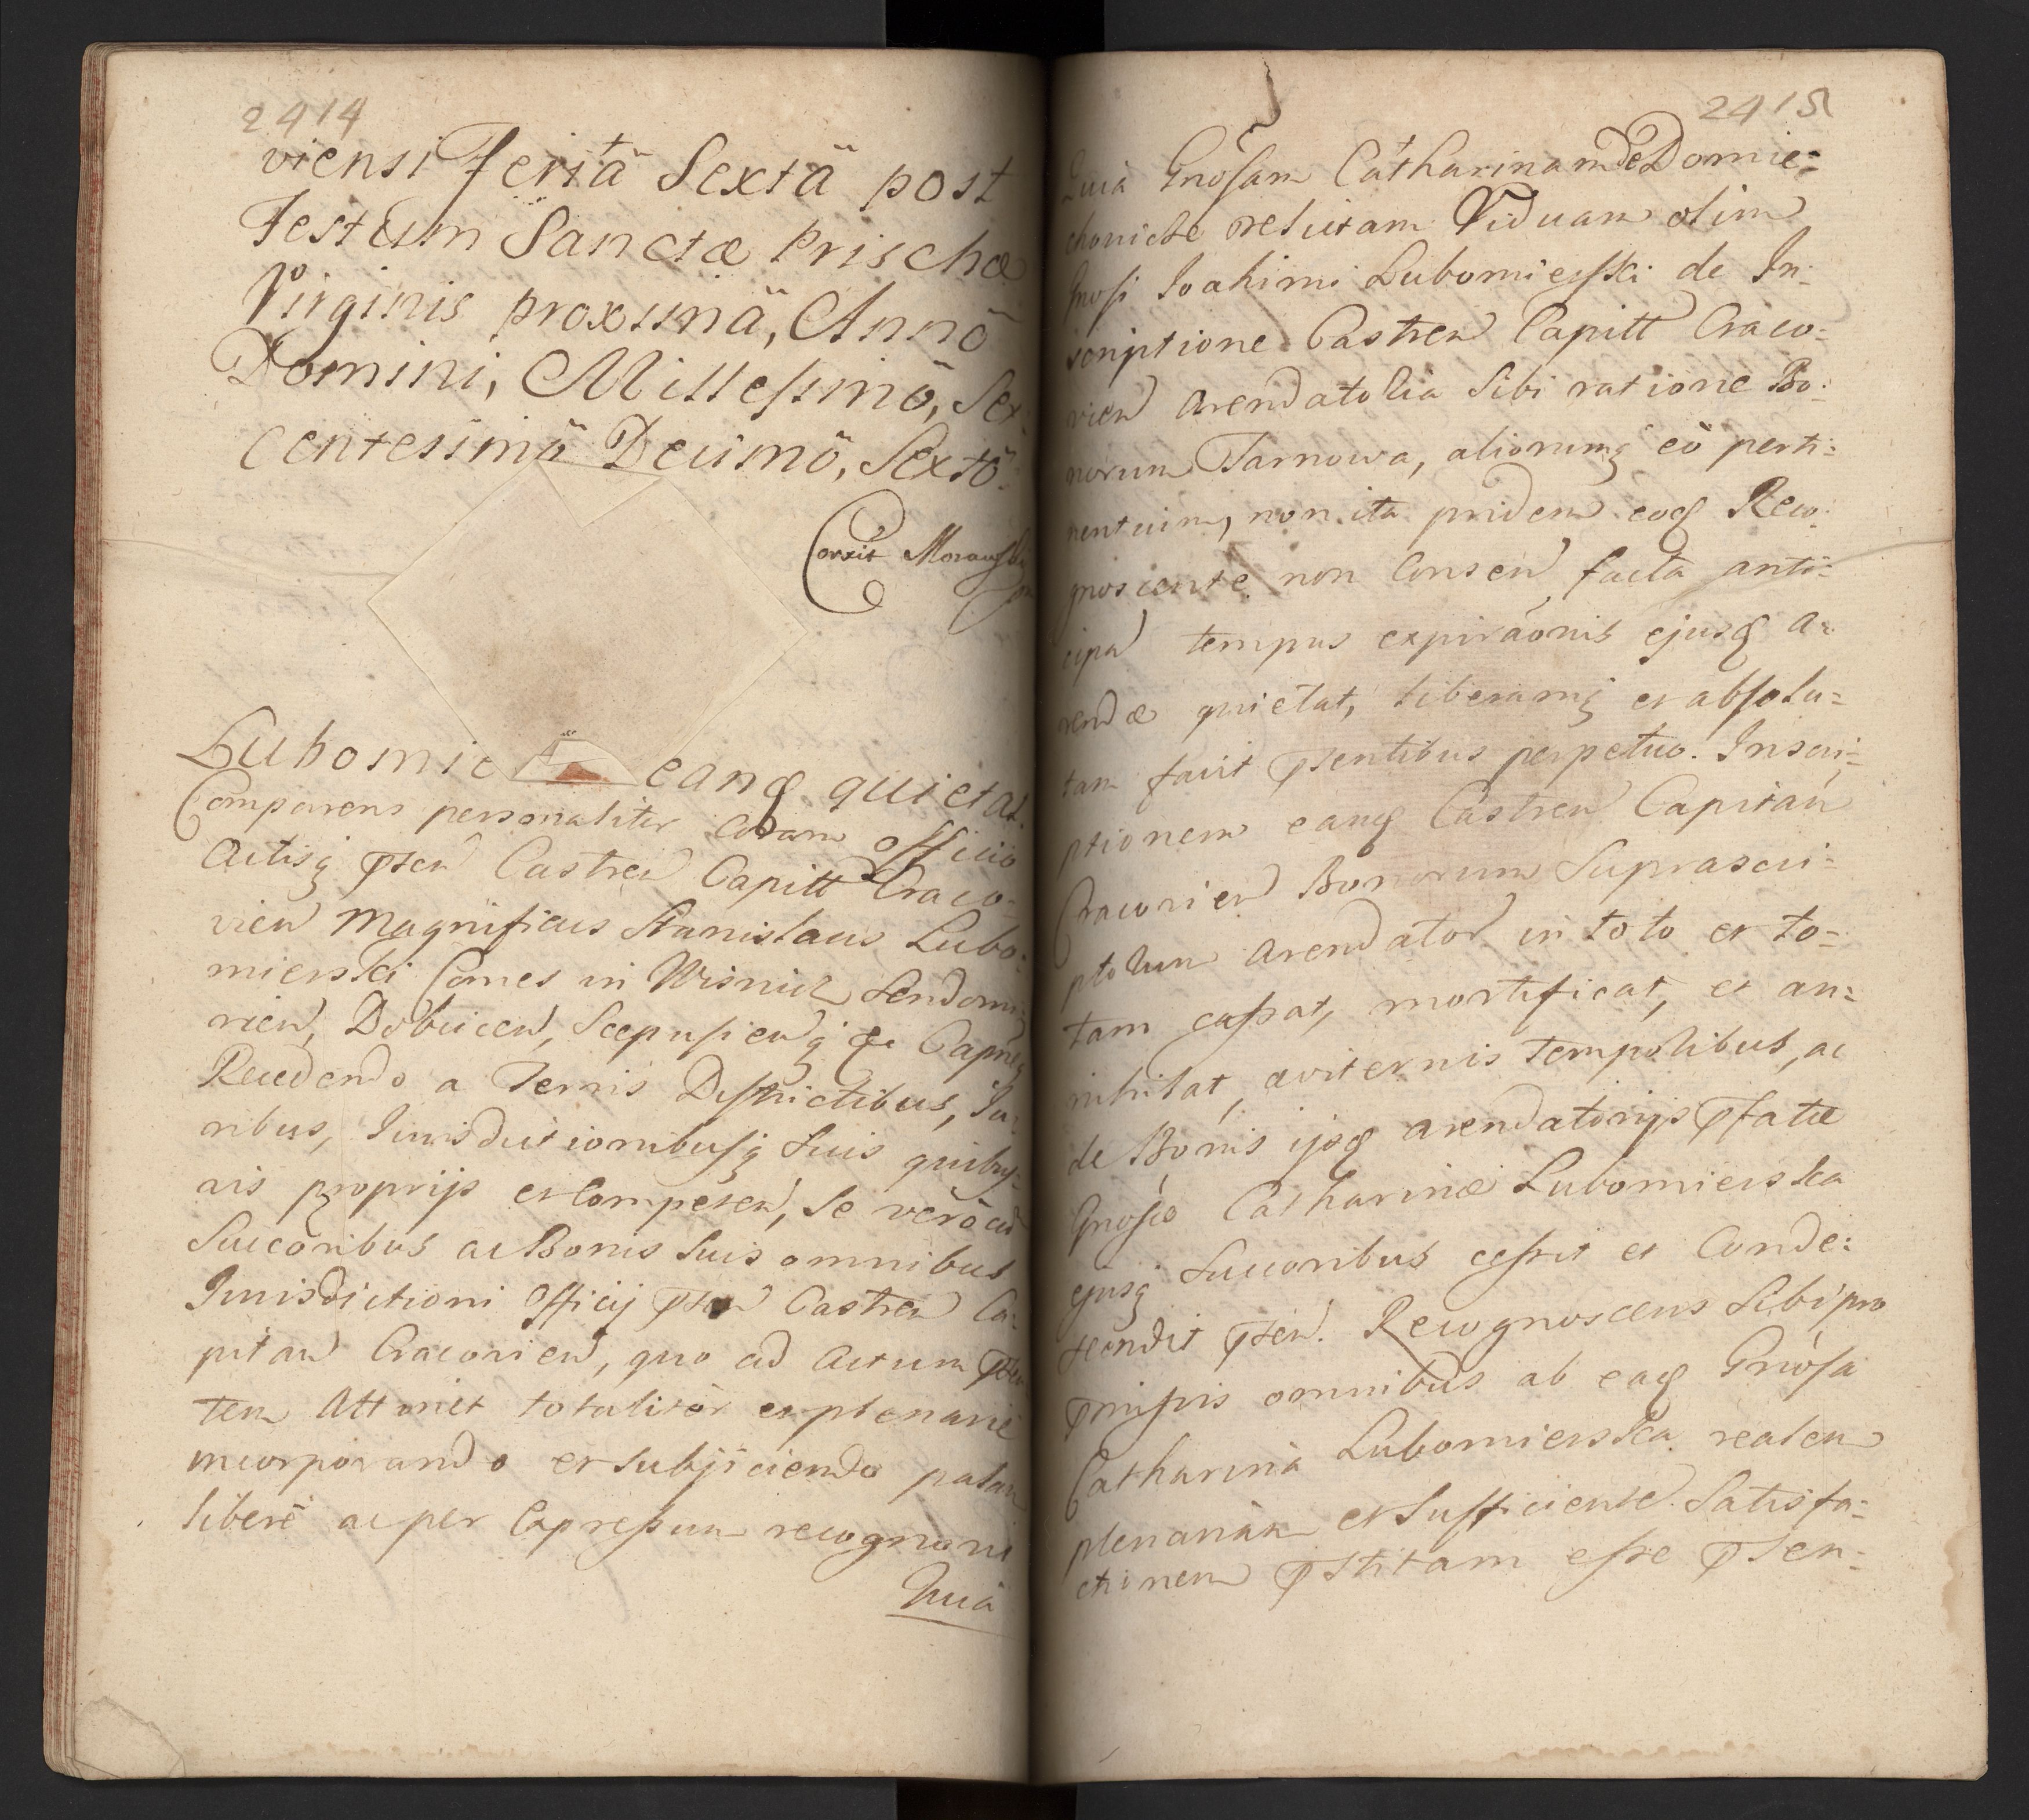 2414
viensi Feriâ Sextâ post
Festum Sanctæ Prischæ
Virginis proximâ, Annô
Domini, Millessimô, Sex:
centesimô Decimô, Sextô.
Corrit Morawski
Lubomie eandq quietat.
Comparens personaliter Coram officio
Actisq pnsen Castren Capitt Craco-
vien Magnificus Stanislaus Lubo:
mierski Comes in Wisnicz Sendomi
rien, Dobcicen, Scepusienq &c Capneus
Recedendo a Terris Districtibus, Iu:
ribus, Iurisdictionibusq Suis quibus:
vis proprijs et Competen, Se verò cum
Succoribus ac Bonis Suis omnibus
Jurisdictioni Officij pnsen Castren Ca:
pitan Cracovien, quo ad Actum pnsen
tem Attinet totalitèr et plenariè
incorporando et Subjiciendo palam
liberè ac per Expressum recognovit
Quià
2415
Quià Gnosam Catharinam de Domie:
chowicze relictam Viduam olim
Gnosi Joakimi Lubomierski de In:
scriptione Castren Capitt Craco:
vien Arendatolia Sibi ratione Bo:
norum Tarnowa, aliorumq eò perti:
nentium, non ita pridem eodq Reco:
gnoscente non Consen facta anti:
cipan tempus expiraonis ejusdq A:
rendæ quietat, liberamq et absolu=
tam facit pnsentibus perpetuo. Inscri:
ptionem eandq Castren Capitan
Cracovien Bonorum Suprascri:
ptolum Arendator in toto et to=
tam cassat, mortificat, et an:
nihilat, aviternis Tempolibus, ac
de Bonis ijsdq arendatorijs pfatæ
Gnosæ Catharinæ Lubomierska
ejusq Succoribus cessit et Conde:
scendit pnsen. Recognoscens Sibi pro
pmissis omnibus ab eadq Gnosa
Catharinà Lubomierska realem
plenariàm et Sufficientem Satisfa:
ctionem pstitam esse pnsen: